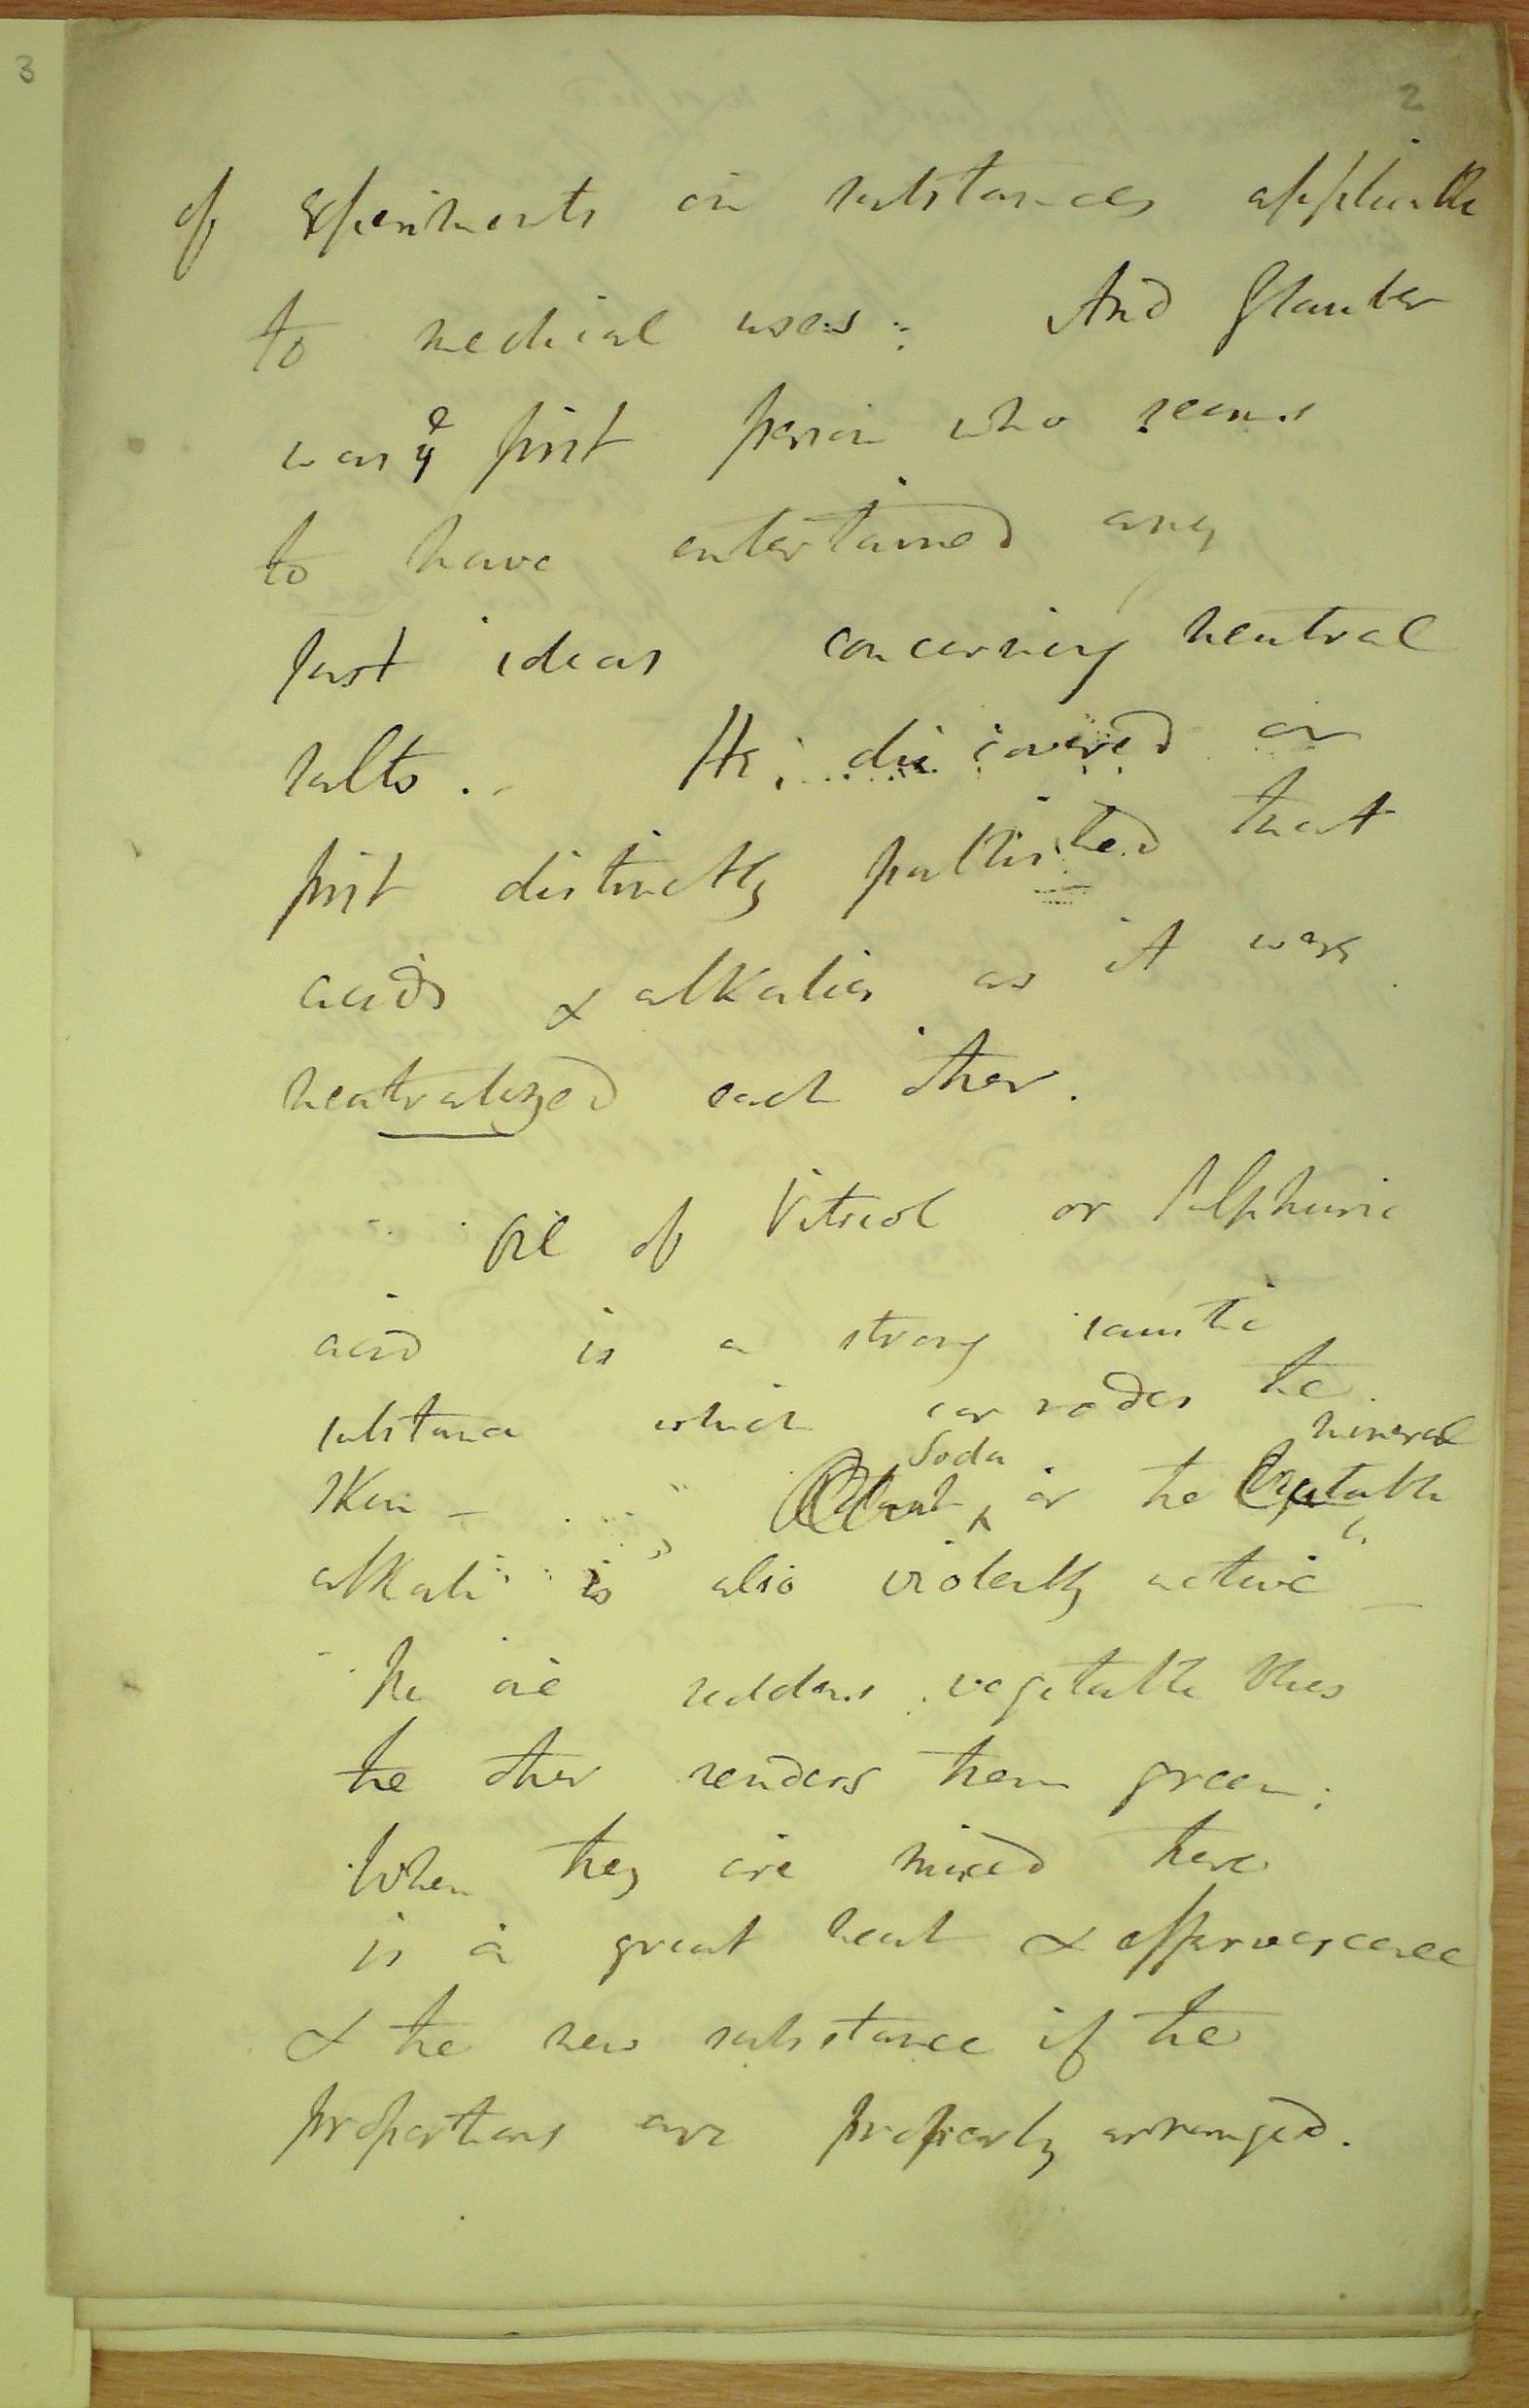 3
2
of experiments on substances applicable
to medical uses; And Glauber
was ye first person who seems
to have entertained any
just ideas concerning neutral
salts. He discovered or
first distinctly published that
acids & alkalies as it were
neutralized each other.
Oil of Vitriol or Sulphuric
acid is a strong caustic
substance which corrodes the
mineral
Soda
skin - or the Vegetable
alkali is also violently active -
The one reddens vegetable blues
the other renders them green;
When they are mixed there
is a great heat & effervescence
& the new substance if the
proportions are properly arranged.